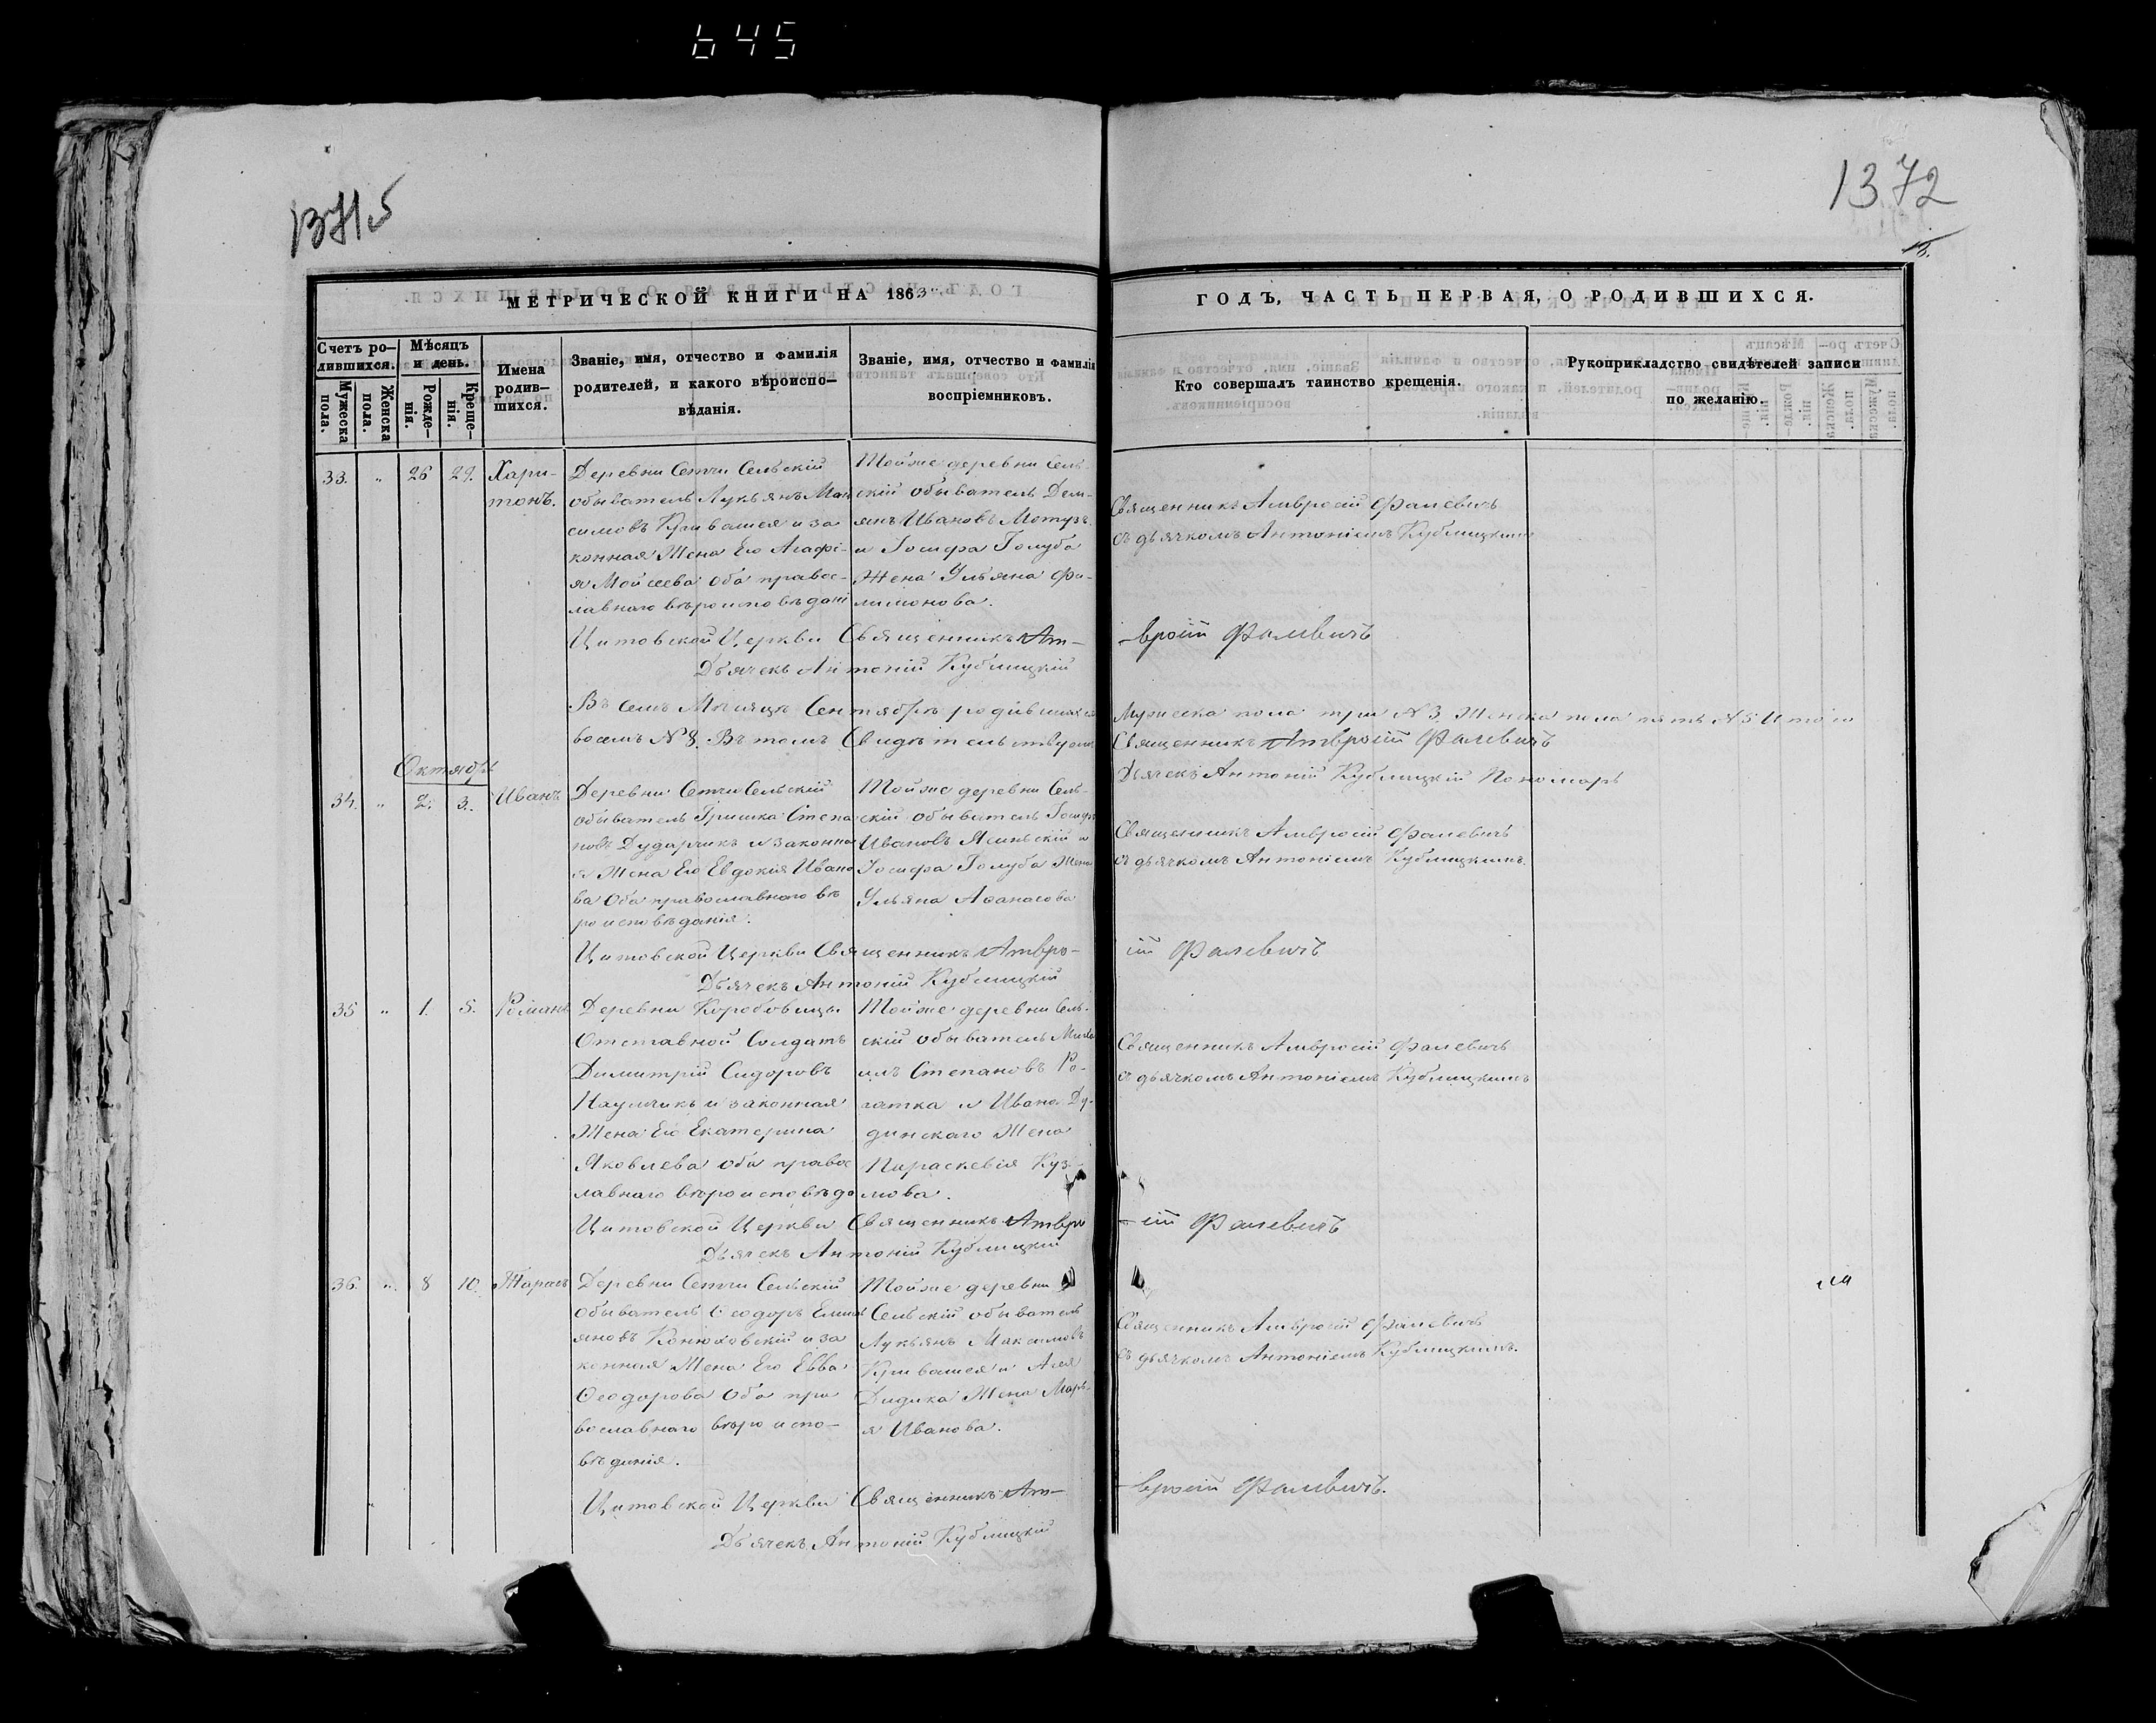 645
1371б
1372
13.
МЕТРИЧЕСКОЙ КНИГИ НА 1863
ГОДЪ, ЧАСТЬ ПЕРВАЯ, О РОДИВШИХСЯ.
Счетъ ро-
дившихся.
Мужеска
пола.
Женска
пола.
Мѣсяцъ
и день.
Рожде-
нія.
Креще-
нія.
Имена
родив-
шихся.
Званіе, имя, отчество и фамилія
родителей, и какого вѣроиспо-
вѣданія.
Званіе, имя, отчество и фамилія
воспріемниковъ.
Кто совершалъ таинство крещенія.
Рукоприкладство свидѣтелей записи
по желанію.
33. " 26 29. Хари-
тонъ.
Деревни Сетчи Сельскій
обыватель Лукьянъ Мак
симовъ Кривашея и за
конная Жена Его Агафі-
я Мойсеева оба правос-
лавнаго вѣроисповѣдані
Тойже деревни Сель-
скій обыватель Дем-
янъ Ивановъ Мотузъ
и Іосифа Голуба
Жена Ульяна Фи-
лимонова.
Священникъ Амвросій Фалевичъ
съ дьячкомъ Антоніемъ Кублицкимъ
Цитовской Церкви Священникъ Ам-
вросій Фалевичъ
Дьячекъ Антоній Кублицкій
Въ семъ Мѣсяцѣ Сентябрѣ родившихся
Мужеска пола три N 3, Женска пола пять N 5 Итого
восемъ N 8. Въ томъ Свидѣтельствуемъ
Священникъ Амвросій Фалевичъ
Дьячекъ Антоній Кублицкій Пономарь
Октябрь
34. " 2. 3. Иванъ
Деревни Сетчи Сельскій
обыватель Гришка Степа
новъ Дударчикъ и законна
я Жена Его Евдокія Ивано
ва Оба православнаго вѣ
роисповѣданія.
Тойже деревни Сель-
скій обыватель Іосифъ
Ивановъ Ясинскій и
Іосифа Голуба Жена
Ульяна Афанасова
Священникъ Амвросій Фалевичъ
съ дьячкомъ Антоніемъ Кублицкимъ.
Цитовской Церкви Священникъ Амвро-
сій Фалевичъ
Дьячекъ Антоній Кублицкій
35 " 1. 5. Романъ
Деревни Коробовицы
Отставной Солдатъ
Димитрій Сидоровъ
Наумчикъ и законная
Жена Его Екатерина
Яковлева оба правос
лавнаго вѣроисповѣда
Тойже деревни Сель-
скій обыватель Миха
илъ Степановъ Ро-
гатка и Ивана Ду-
динскаго Жена
Параскевія Куз-
мова.
Священникъ Амвросій Фалевичъ
съ дьячкомъ Антоніемъ Кублицкимъ
Цитовской Церкви Священникъ Амвро
-сій Фалевичъ
Дьячекъ Антоній Кублицкій
36. " 8 10. Тарасъ
Деревни Сетчи Сельскій
обыватель Ѳеодоръ Емил
яновъ Конюховскій и за
конная Жена Его Евва
Ѳеодорова Оба пра
вославнаго вѣроиспо-
вѣданія.
Тойже деревни
Сельскій обыватель
Лукьянъ Максимовъ
Кривашея и
Дидика Жена Марь-
я Иванова.
Священникъ Амвросій Фалевичъ
съ дьячкомъ Антоніемъ Кублицкимъ.
Цитовской Церкви Священникъ Ам-
вросій Фалевичъ.
Дьячекъ Антоній Кублицкій